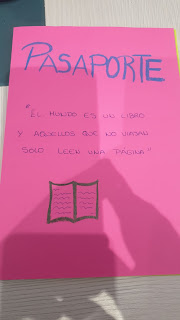 PASAPORTE
"EL MUNDO ES UN LIBRO
Y AQUELLOS QUE NO VIAJAN
SOLO LEEN UNA PÁGINA"